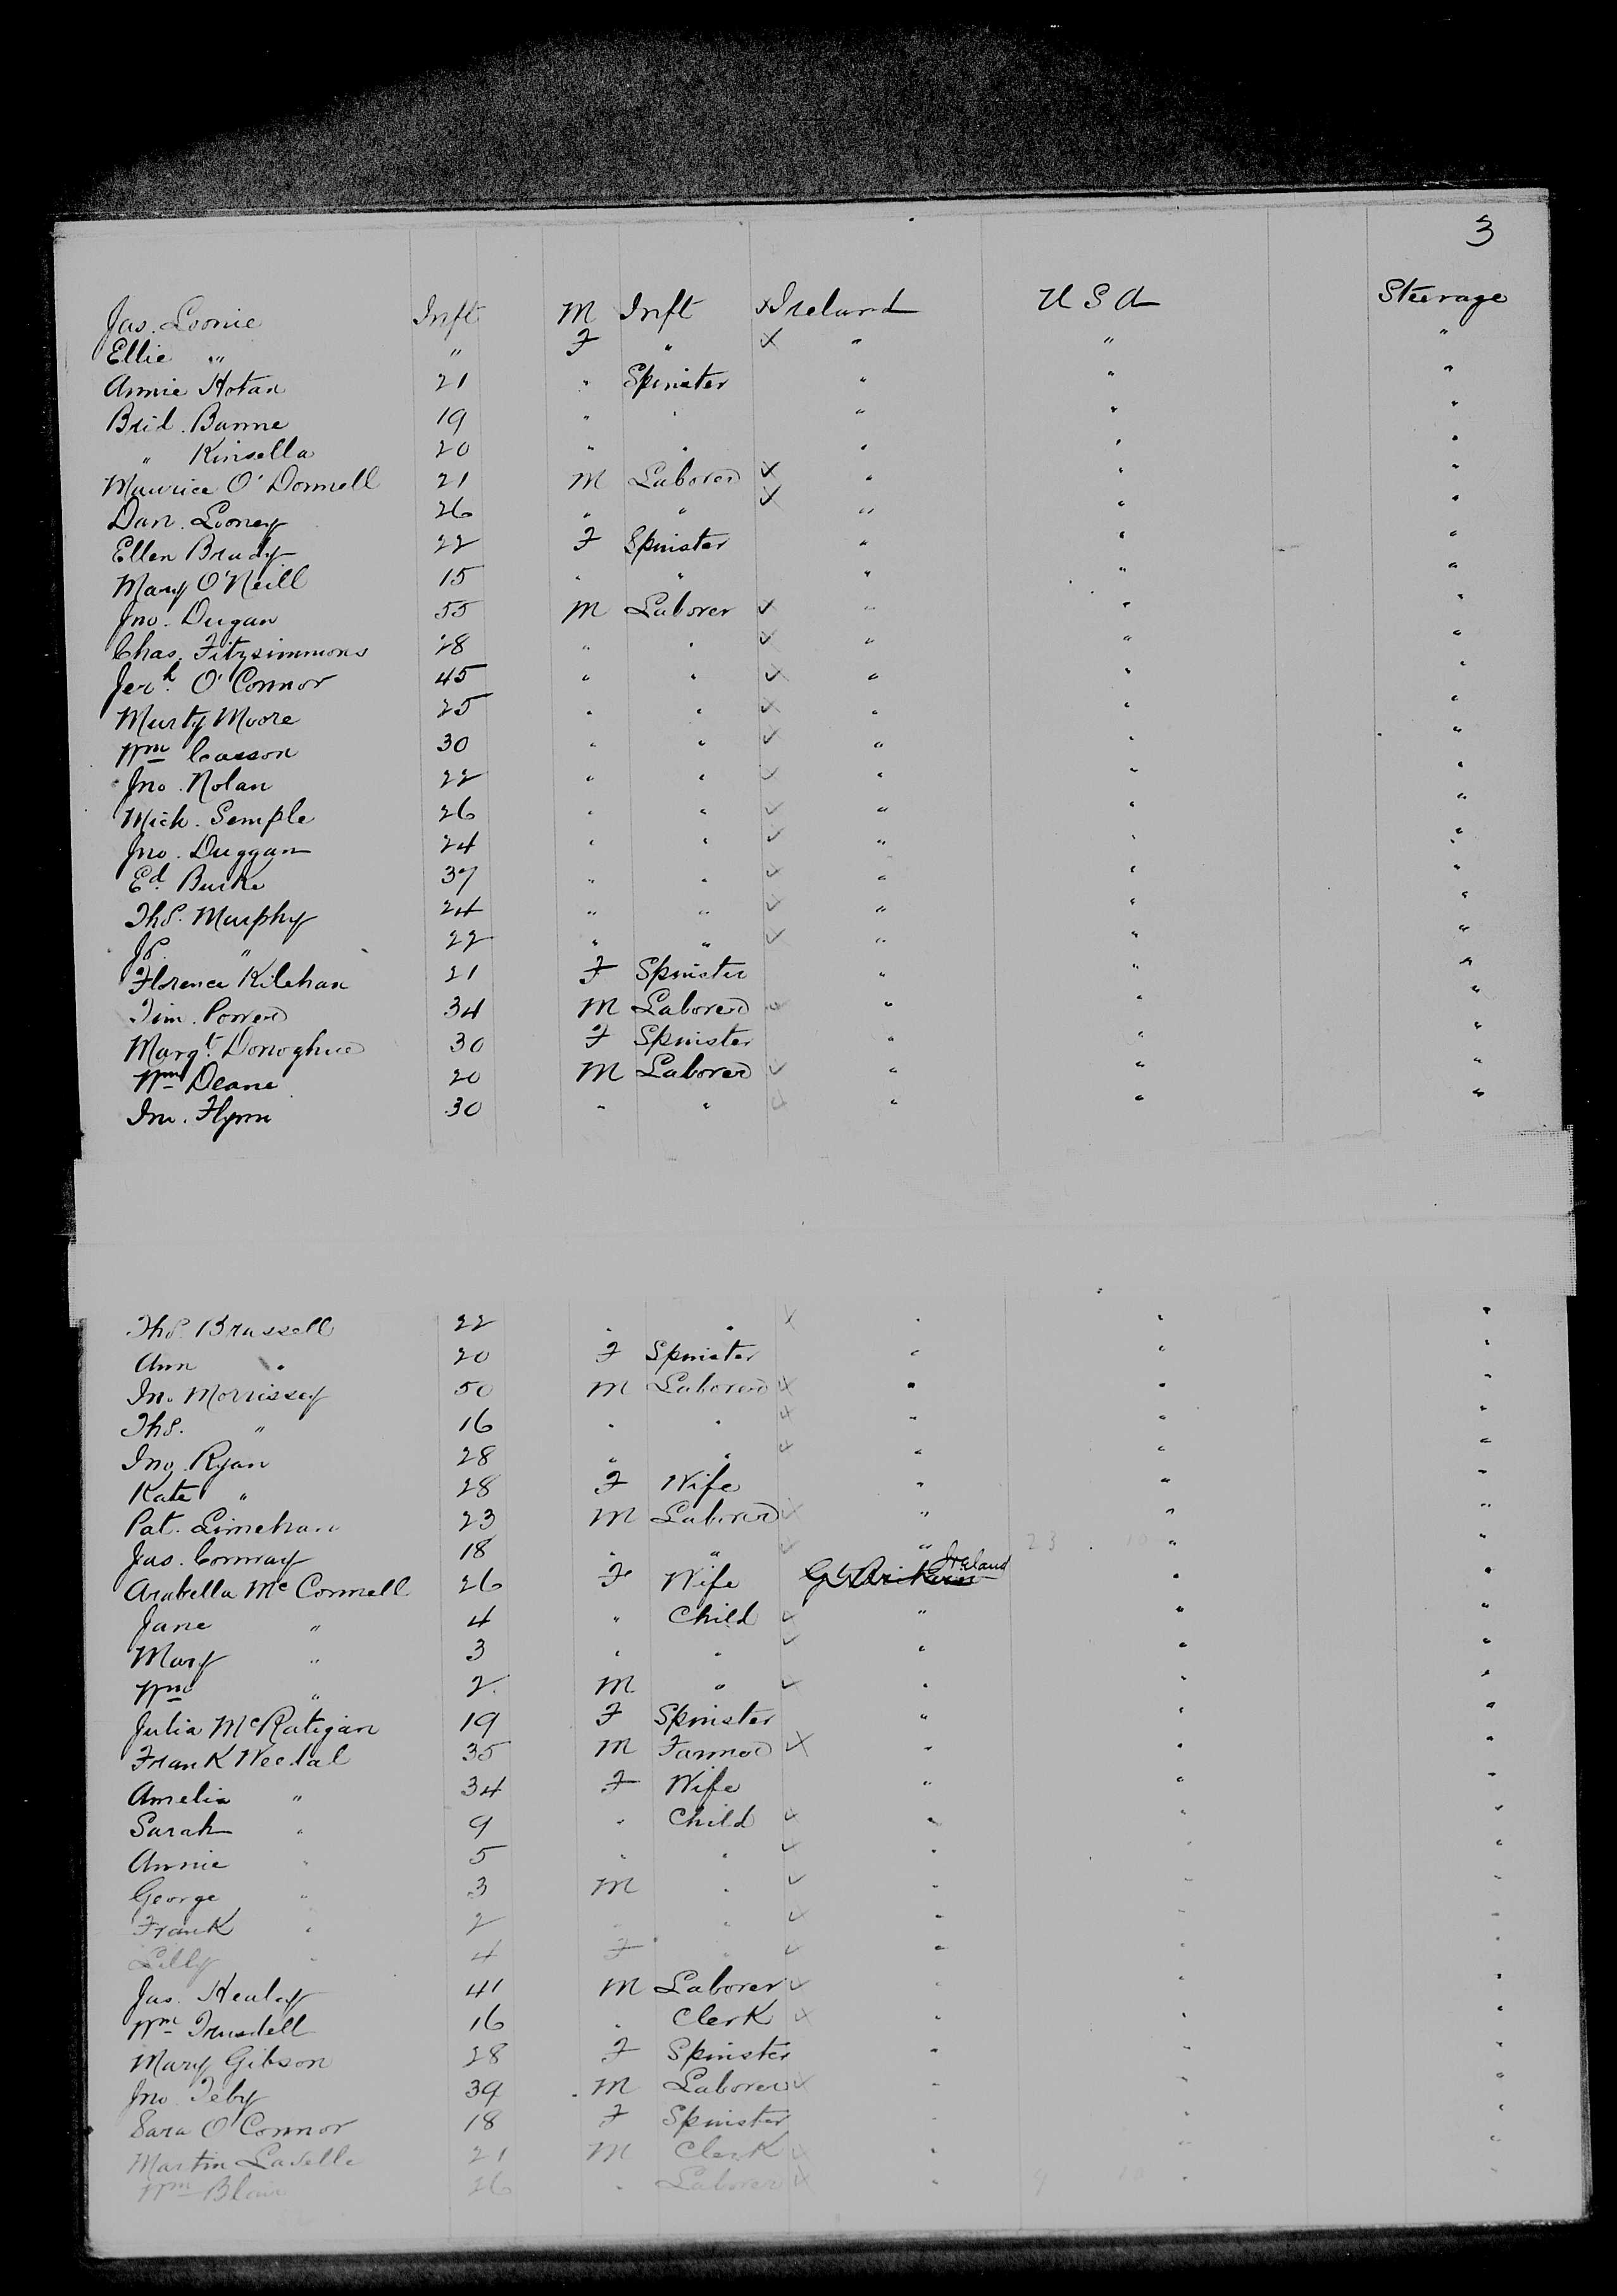 3
Jas. Loonie Inft M Inft Ireland U S A Steerage
Ellie " " F " " " "
Annie Hotan 21 " Spinster " " "
Brid. Banne 19 " " " " "
" Kinsella 20 " " " " "
Maurice O'Donnell 21 M Laborer " " "
Dan. Looney 26 " " " " "
Ellen Brady 22 F Spinster " " "
Mary O'Neill 15 " " " " "
Jno. Dugan 55 M Laborer " " "
Chas. Fitzsimmons 28 " " " " "
Jerh. O'Connor 45 " " " " "
Murty Moore 25 " " " " "
Wm Casson 30 " " " " "
Jno. Nolan 22 " " " " "
Mich. Semple 26 " " " " "
Jno. Duggan 24 " " " " "
Ed. Burke 37 " " " " "
Ths. Murphy 24 " " " " "
Js. " 22 " " " " "
Florence Kilehan 21 F Spinster " " "
Tim. Power 34 M Laborer " " "
Margt. Donoghue 30 F Spinster " " "
Wm Deane 20 M Laborer " " "
Jno. Flynn 30 " " " " "
Ths. Brassell 22 " " " " "
Ann " 20 F Spinster " " "
Jno. Morrissey 50 M Laborer " " "
Ths. " 16 " " " " "
Jno. Ryan 28 " " " " "
Kate " 28 F Wife " " "
Pat. Linehan 23 M Laborer " " "
Jas. Conway 18 " " " 23 10 " "
Arabella McConnell 26 F Wife Ireland " "
Jane " 4 " Child " " "
Mary " 3 " " " " "
Wm " 2 M " " " "
Julia McRatigan 19 F Spinster " " "
Frank Weedal 35 M Farmer " " "
Amelia " 34 F Wife " " "
Sarah " 9 " Child " " "
Annie " 5 " " " " "
George " 3 M " " " "
Frank " 2 " " " " "
Lilly " 4 F " " " "
Jas. Healey 41 M Laborer " " "
Wm Trusdell 16 " Clerk " " "
Mary Gibson 28 F Spinster " " "
Jno. Teby 39 M Laborer " " "
Sara O'Connor 18 F Spinster " " "
Martin Lavelle 21 M Clerk " " "
Wm Blair 26 " Laborer " 9 10 " "